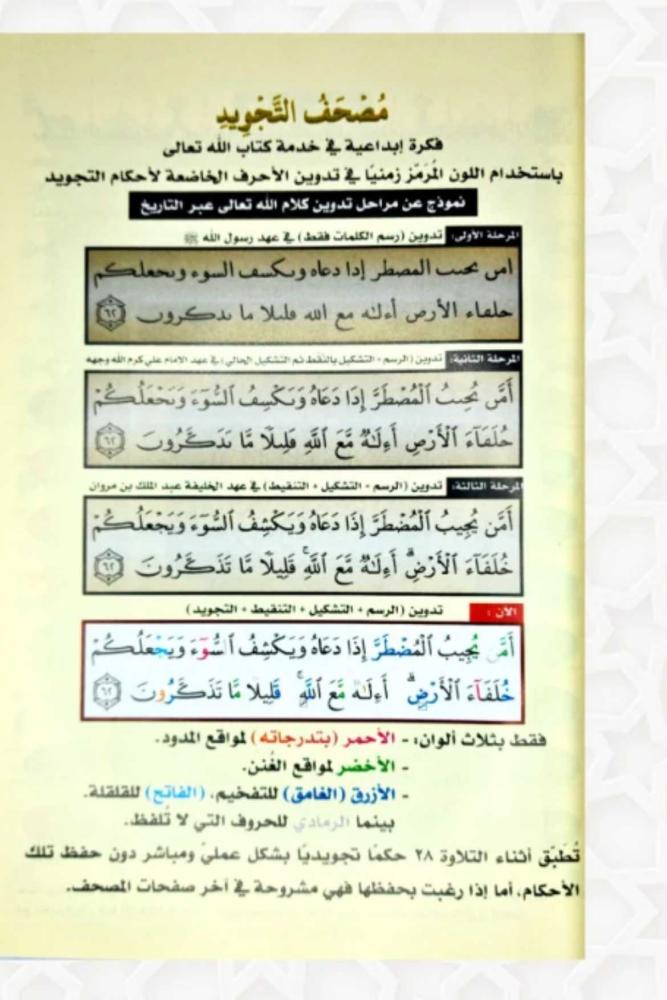 مُصْحَفُ التَّجْوِيدِ
فكرة إبداعية في خدمة كتاب الله تعالى
باستخدام اللون المُرَمّز زمنيًا في تدوين الأحرف الخاضعة لأحكام التجويد
نموذج عن مراحل تدوين كلام الله تعالى عبر التاريخ
المرحلة الأولى: تدوين (رسم الكلمات فقط) في عهد رسول الله ﷺ
امں ںحںٮ المصطر إدا دعاه وںكسڡ السوء وںحعلكم
حلڡاء الأرص أءلـٰه مع الله ڡلىلا ما ںدكروں ٦٢
المرحلة الثانية: تدوين (الرسم + التشكيل بالنقط ثم التشكيل الحالي) في عهد الامام علي كرم الله وجهه
أَمَّں ںُحِںٮُ ٱلْمُصْطَرَّ إِدَا دَعَاهُ وَںَكْسِڡُ ٱلسُّوٓءَ وَںَحْعَلُكُمْ
حُلَڡَآءَ ٱلْأَرْصِ أَءِلَـٰهٌ مَّعَ ٱللَّهِ ڡَلِںلًا مَّا ںَدَكَّرُوںَ ٦٢
المرحلة الثالثة: تدوين (الرسم + التشكيل + التنقيط) في عهد الخليفة عبد الملك بن مروان
أَمَّن يُجِيبُ ٱلْمُضْطَرَّ إِذَا دَعَاهُ وَيَكْشِفُ ٱلسُّوٓءَ وَيَجْعَلُكُمْ
خُلَفَآءَ ٱلْأَرْضِ ۗ أَءِلَـٰهٌ مَّعَ ٱللَّهِ ۚ قَلِيلًا مَّا تَذَكَّرُونَ ٦٢
الآن : تدوين (الرسم + التشكيل + التنقيط + التجويد)
أَمَّن يُجِيبُ ٱلْمُضْطَرَّ إِذَا دَعَاهُ وَيَكْشِفُ ٱلسُّوٓءَ وَيَجْعَلُكُمْ
خُلَفَآءَ ٱلْأَرْضِ ۗ أَءِلَـٰهٌ مَّعَ ٱللَّهِ ۚ قَلِيلًا مَّا تَذَكَّرُونَ ٦٢
فقط بثلاث ألوان: - الأحمر (بتدرجاته) لمواقع المدود.
- الأخضر لمواقع الغُنن.
- الأزرق (الغامق) للتفخيم، (الفاتح) للقلقلة.
بينما الرمادي للحروف التي لا تُلفظ.
تُطبّق أثناء التلاوة ٢٨ حكمًا تجويديًا بشكل عملي ومباشر دون حفظ تلك
الأحكام، أما إذا رغبت بحفظها فهي مشروحة في آخر صفحات المصحف.